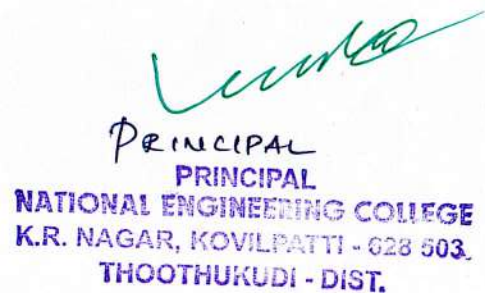 PRINCIPAL
PRINCIPAL
NATIONAL ENGINEERING COLLEGE
K.R. NAGAR, KOVILPATTI - 628 503.
THOOTHUKUDI - DIST.